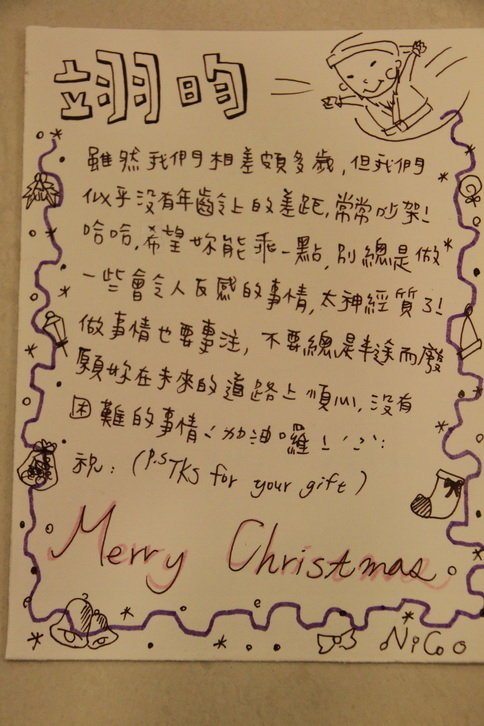 翊昀
雖然我們相差頗多歲,但我們
似乎沒有年齡上的差距,常常吵架!
哈哈,希望妳能乖一點,別總是做
一些會令人反感的事情,太神經質了!
做事情也要專注,不要總是半途而廢
願妳在未來的道路上順心,沒有
困難的事情!加油囉!
祝:(P.S TKS for your gift)
Merry Christmas
NiCoo